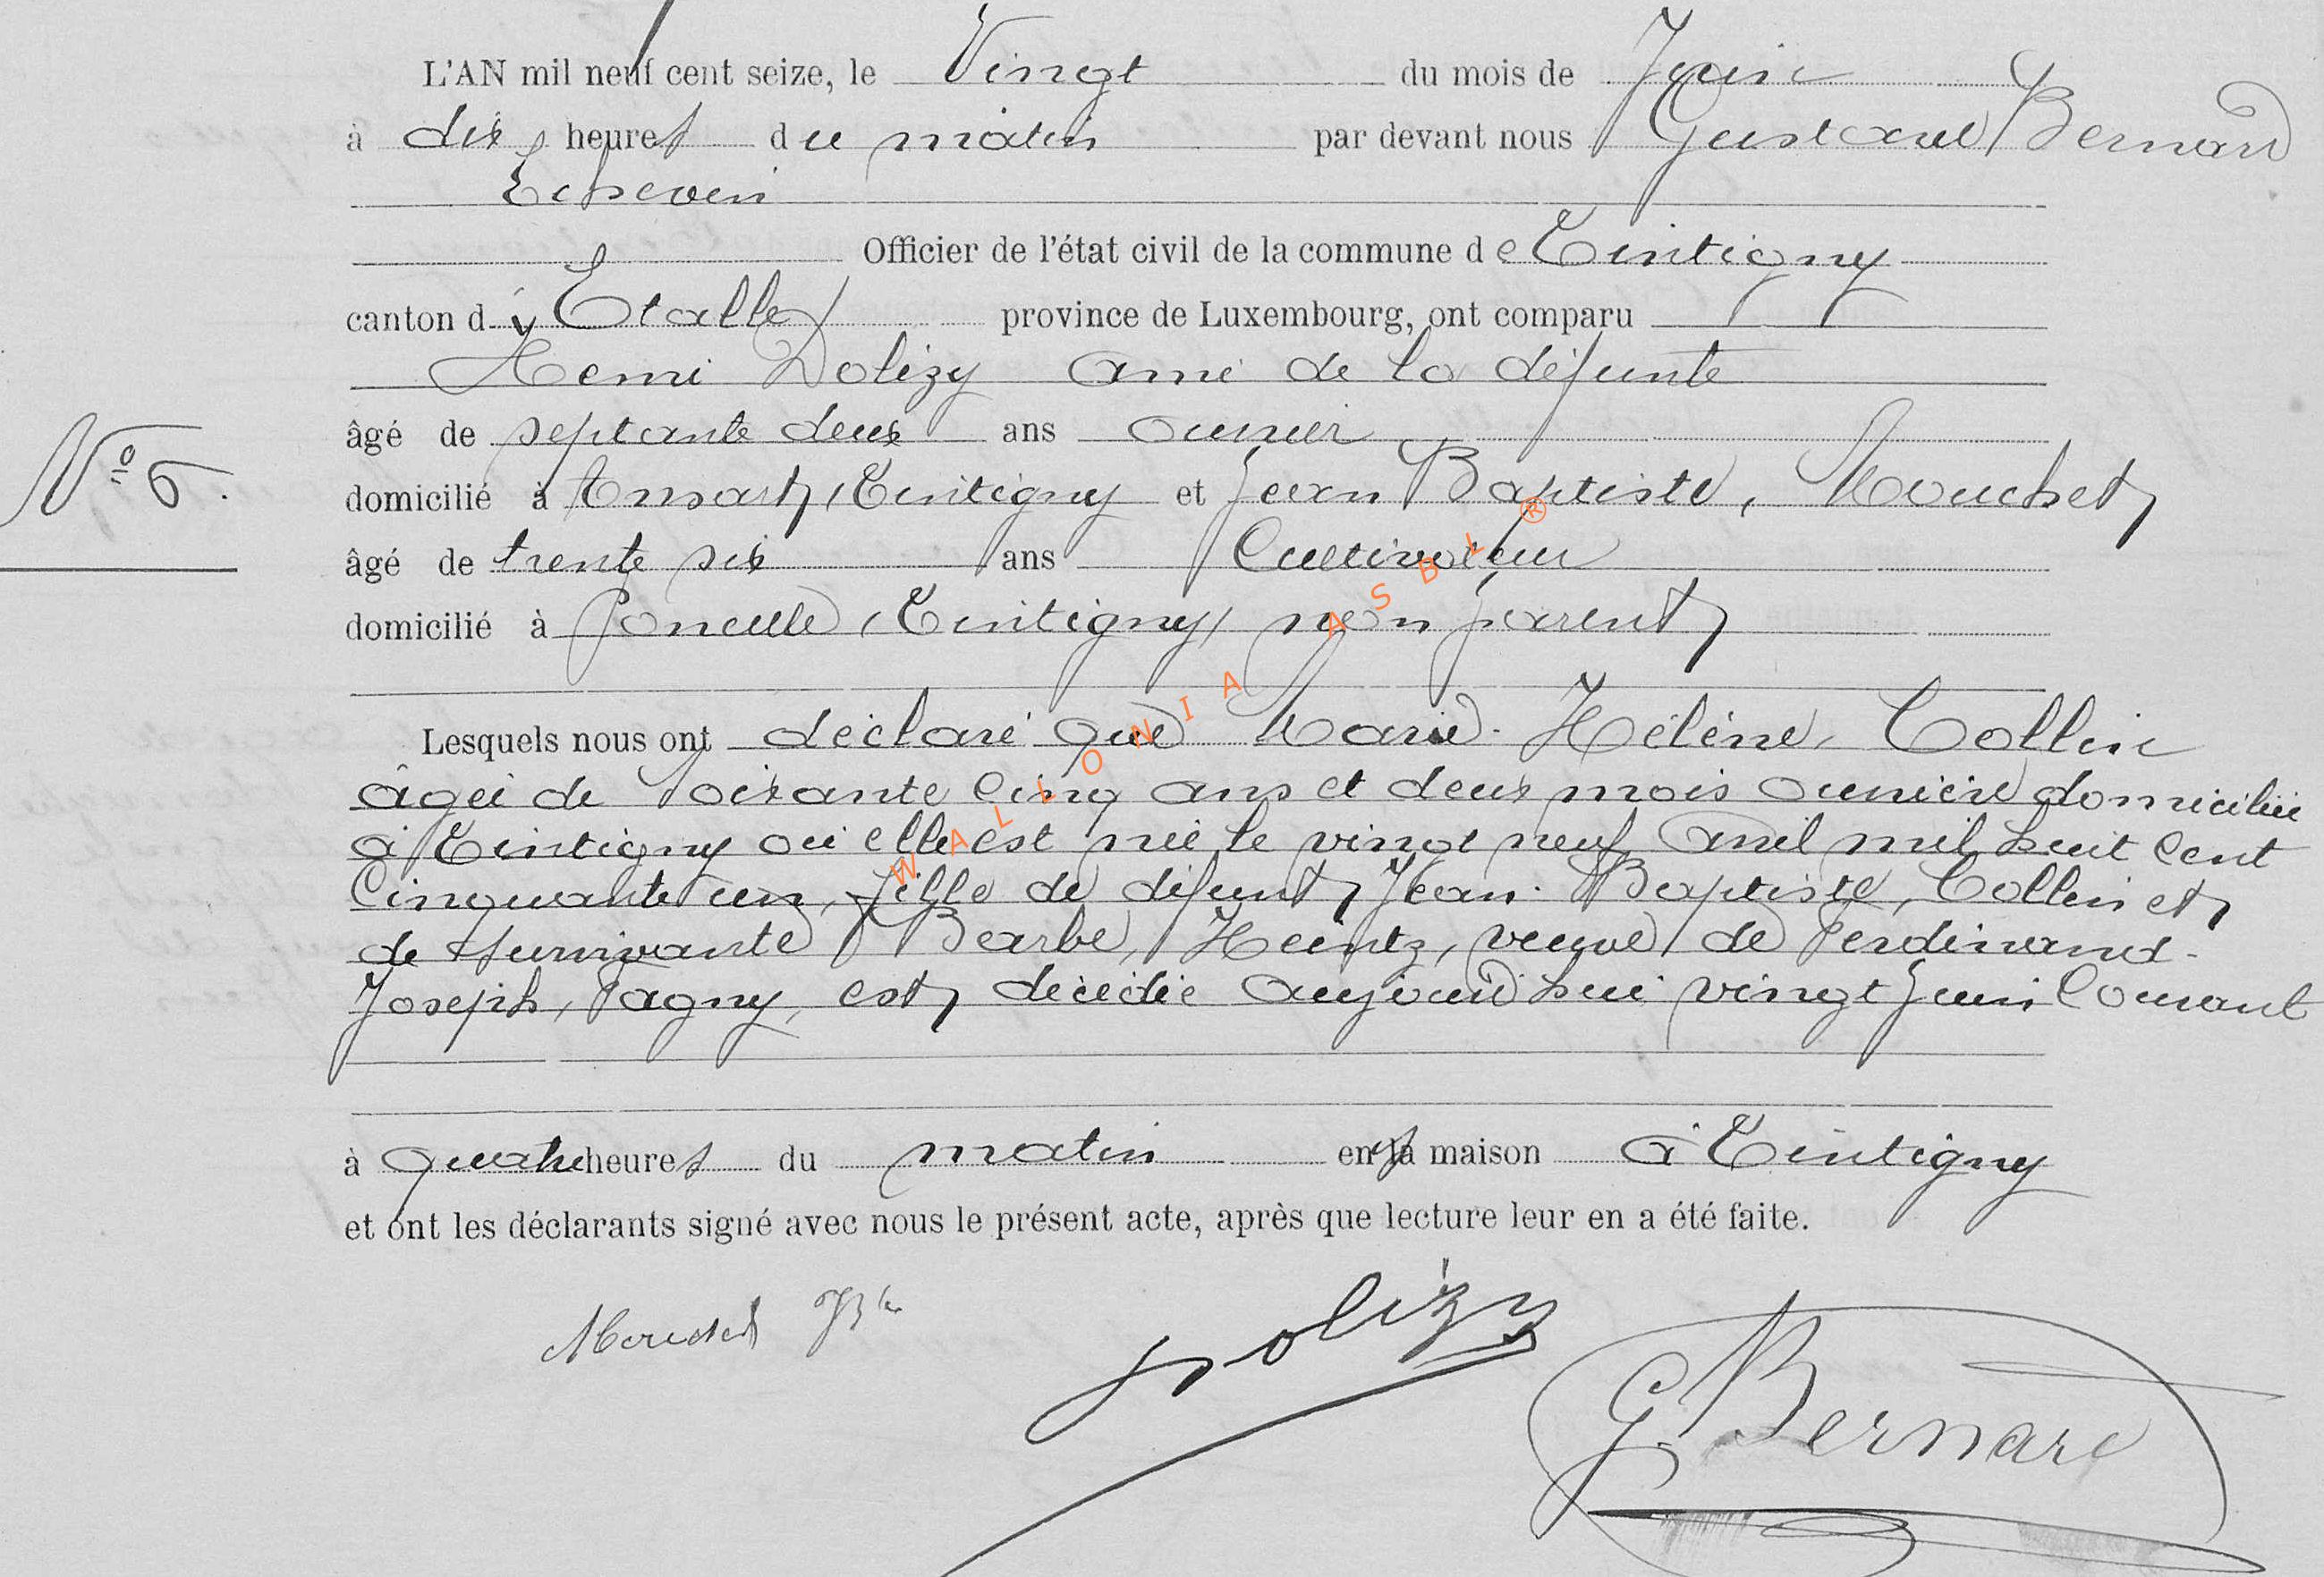 L'AN mil neuf cent seize, le Vingt du mois de Juin
à dix heures du matin par devant nous Gustave Bernard
Echevin
Officier de l'état civil de la commune de Tintigny
canton d'Etalle province de Luxembourg, ont comparu
Henri Dolizy ami de la défunte
âgé de septante deux ans ouvrier
N° 6.
domicilié à Ansart, Tintigny et Jean Baptiste, Mouchet
âgé de trente six ans Cultivateur
domicilié à Poncelle, Tintigny, non parent
Lesquels nous ont déclaré que Marie-Hélène, Collin
âgée de Soixante Cinq ans et deux mois ouvrière domiciliée
à Tintigny où elle est née le vingt neuf Avril mil huit Cent
Cinquante un, fille de défunt Jean-Baptiste, Collin et
de survivante Barbe, Heintz, veuve de Ferdinand-
Joseph, Pagny, est décédée aujourd'hui vingt Juin Courant
à quatre heures du matin en sa maison à Tintigny
et ont les déclarants signé avec nous le présent acte, après que lecture leur en a été faite.
Mouchet JBte Dolizy G. Bernard
WALLONIA ASBL ®